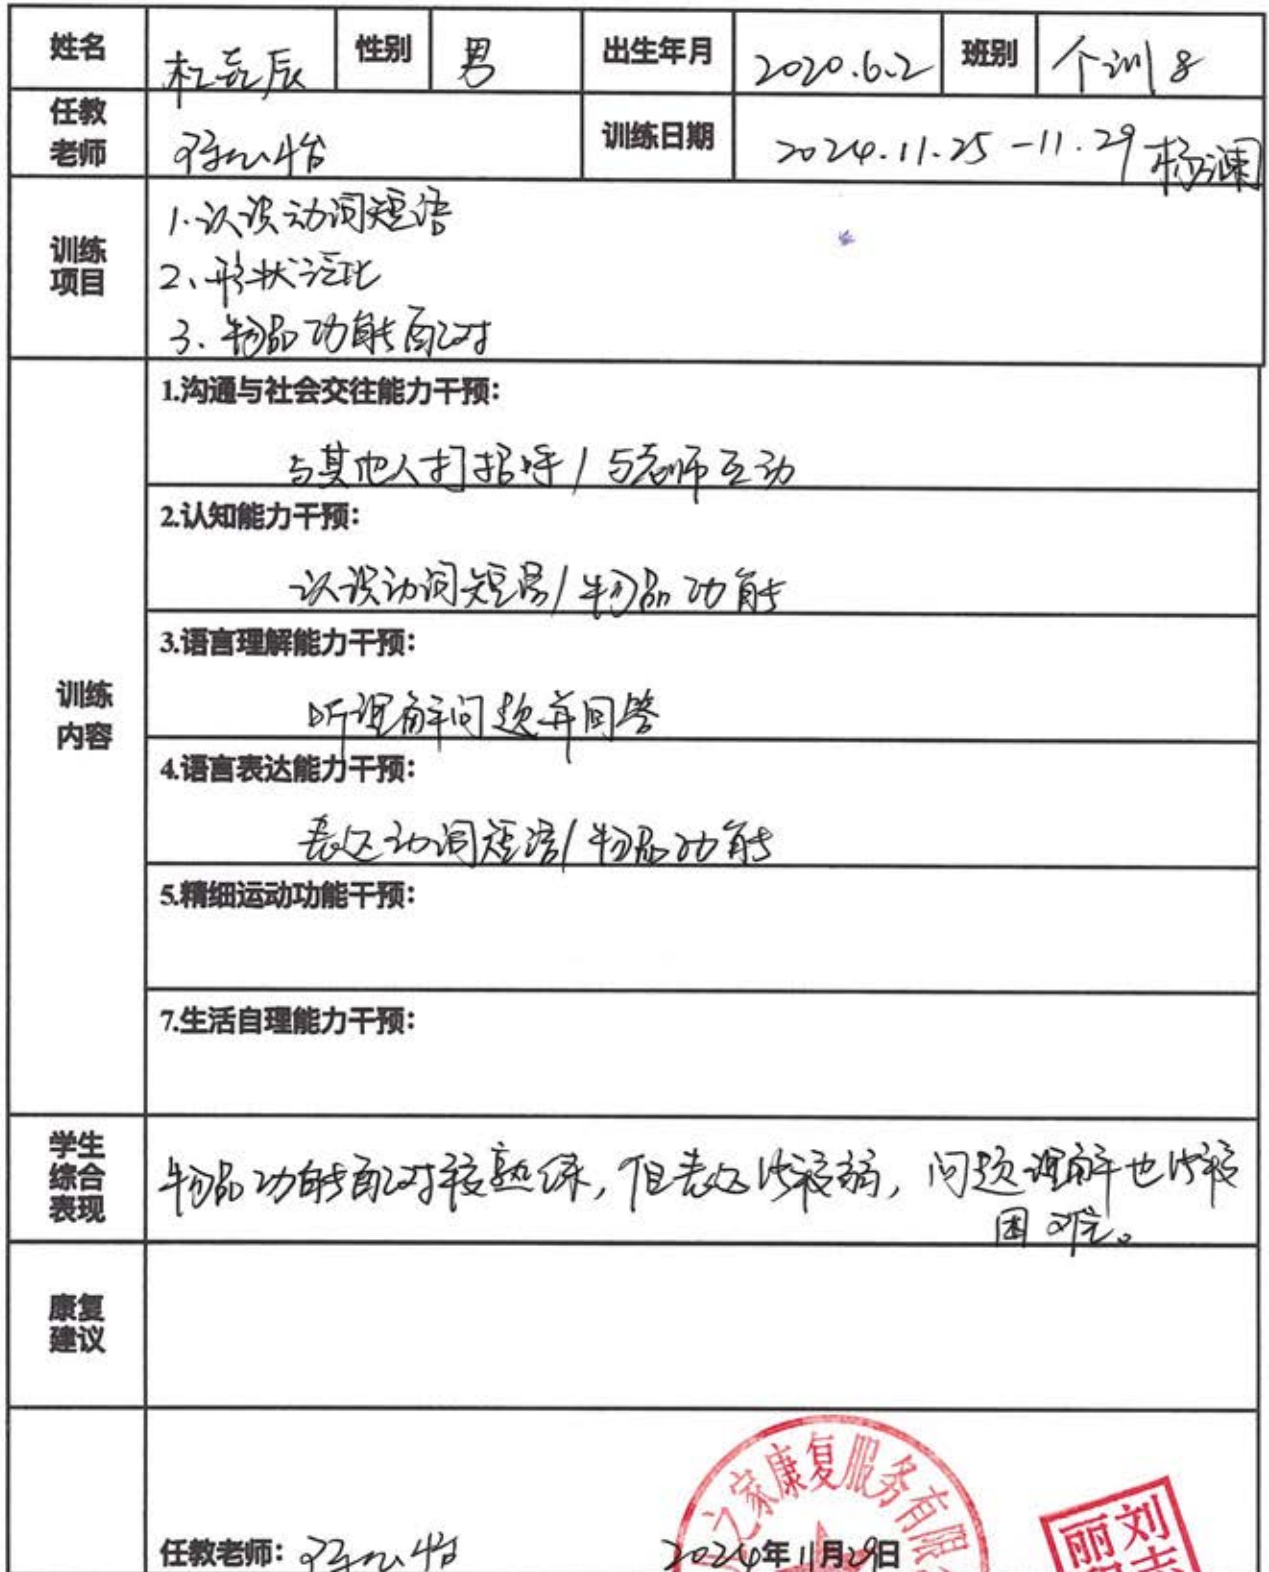 姓名 性别 男 出生年月 2020.6.2 班别 个训8
任教
老师
训练日期 2024.11.25-11.29
训练
项目
1.认识动词短语
2、形状泛化
3、物品功能配对
训练
内容
1.沟通与社会交往能力干预：
与其他人打招呼/与老师互动
2.认知能力干预：
认识动词短语/物品功能
3.语言理解能力干预：
听理解问题并回答
4.语言表达能力干预：
表达动词短语/物品功能
5.精细运动功能干预：
7.生活自理能力干预：
学生
综合
表现
物品功能配对较熟练，但表达比较弱，问题理解也比较
困难。
康复
建议
任教老师： 2024年11月29日
之家康复服务有限